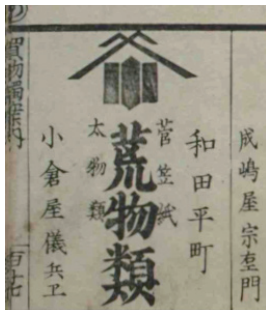 成嶋屋宗壱門
和田平町
菅笠紙
荒物類
太物類
小倉屋儀兵卫
買物獨案内
百十七